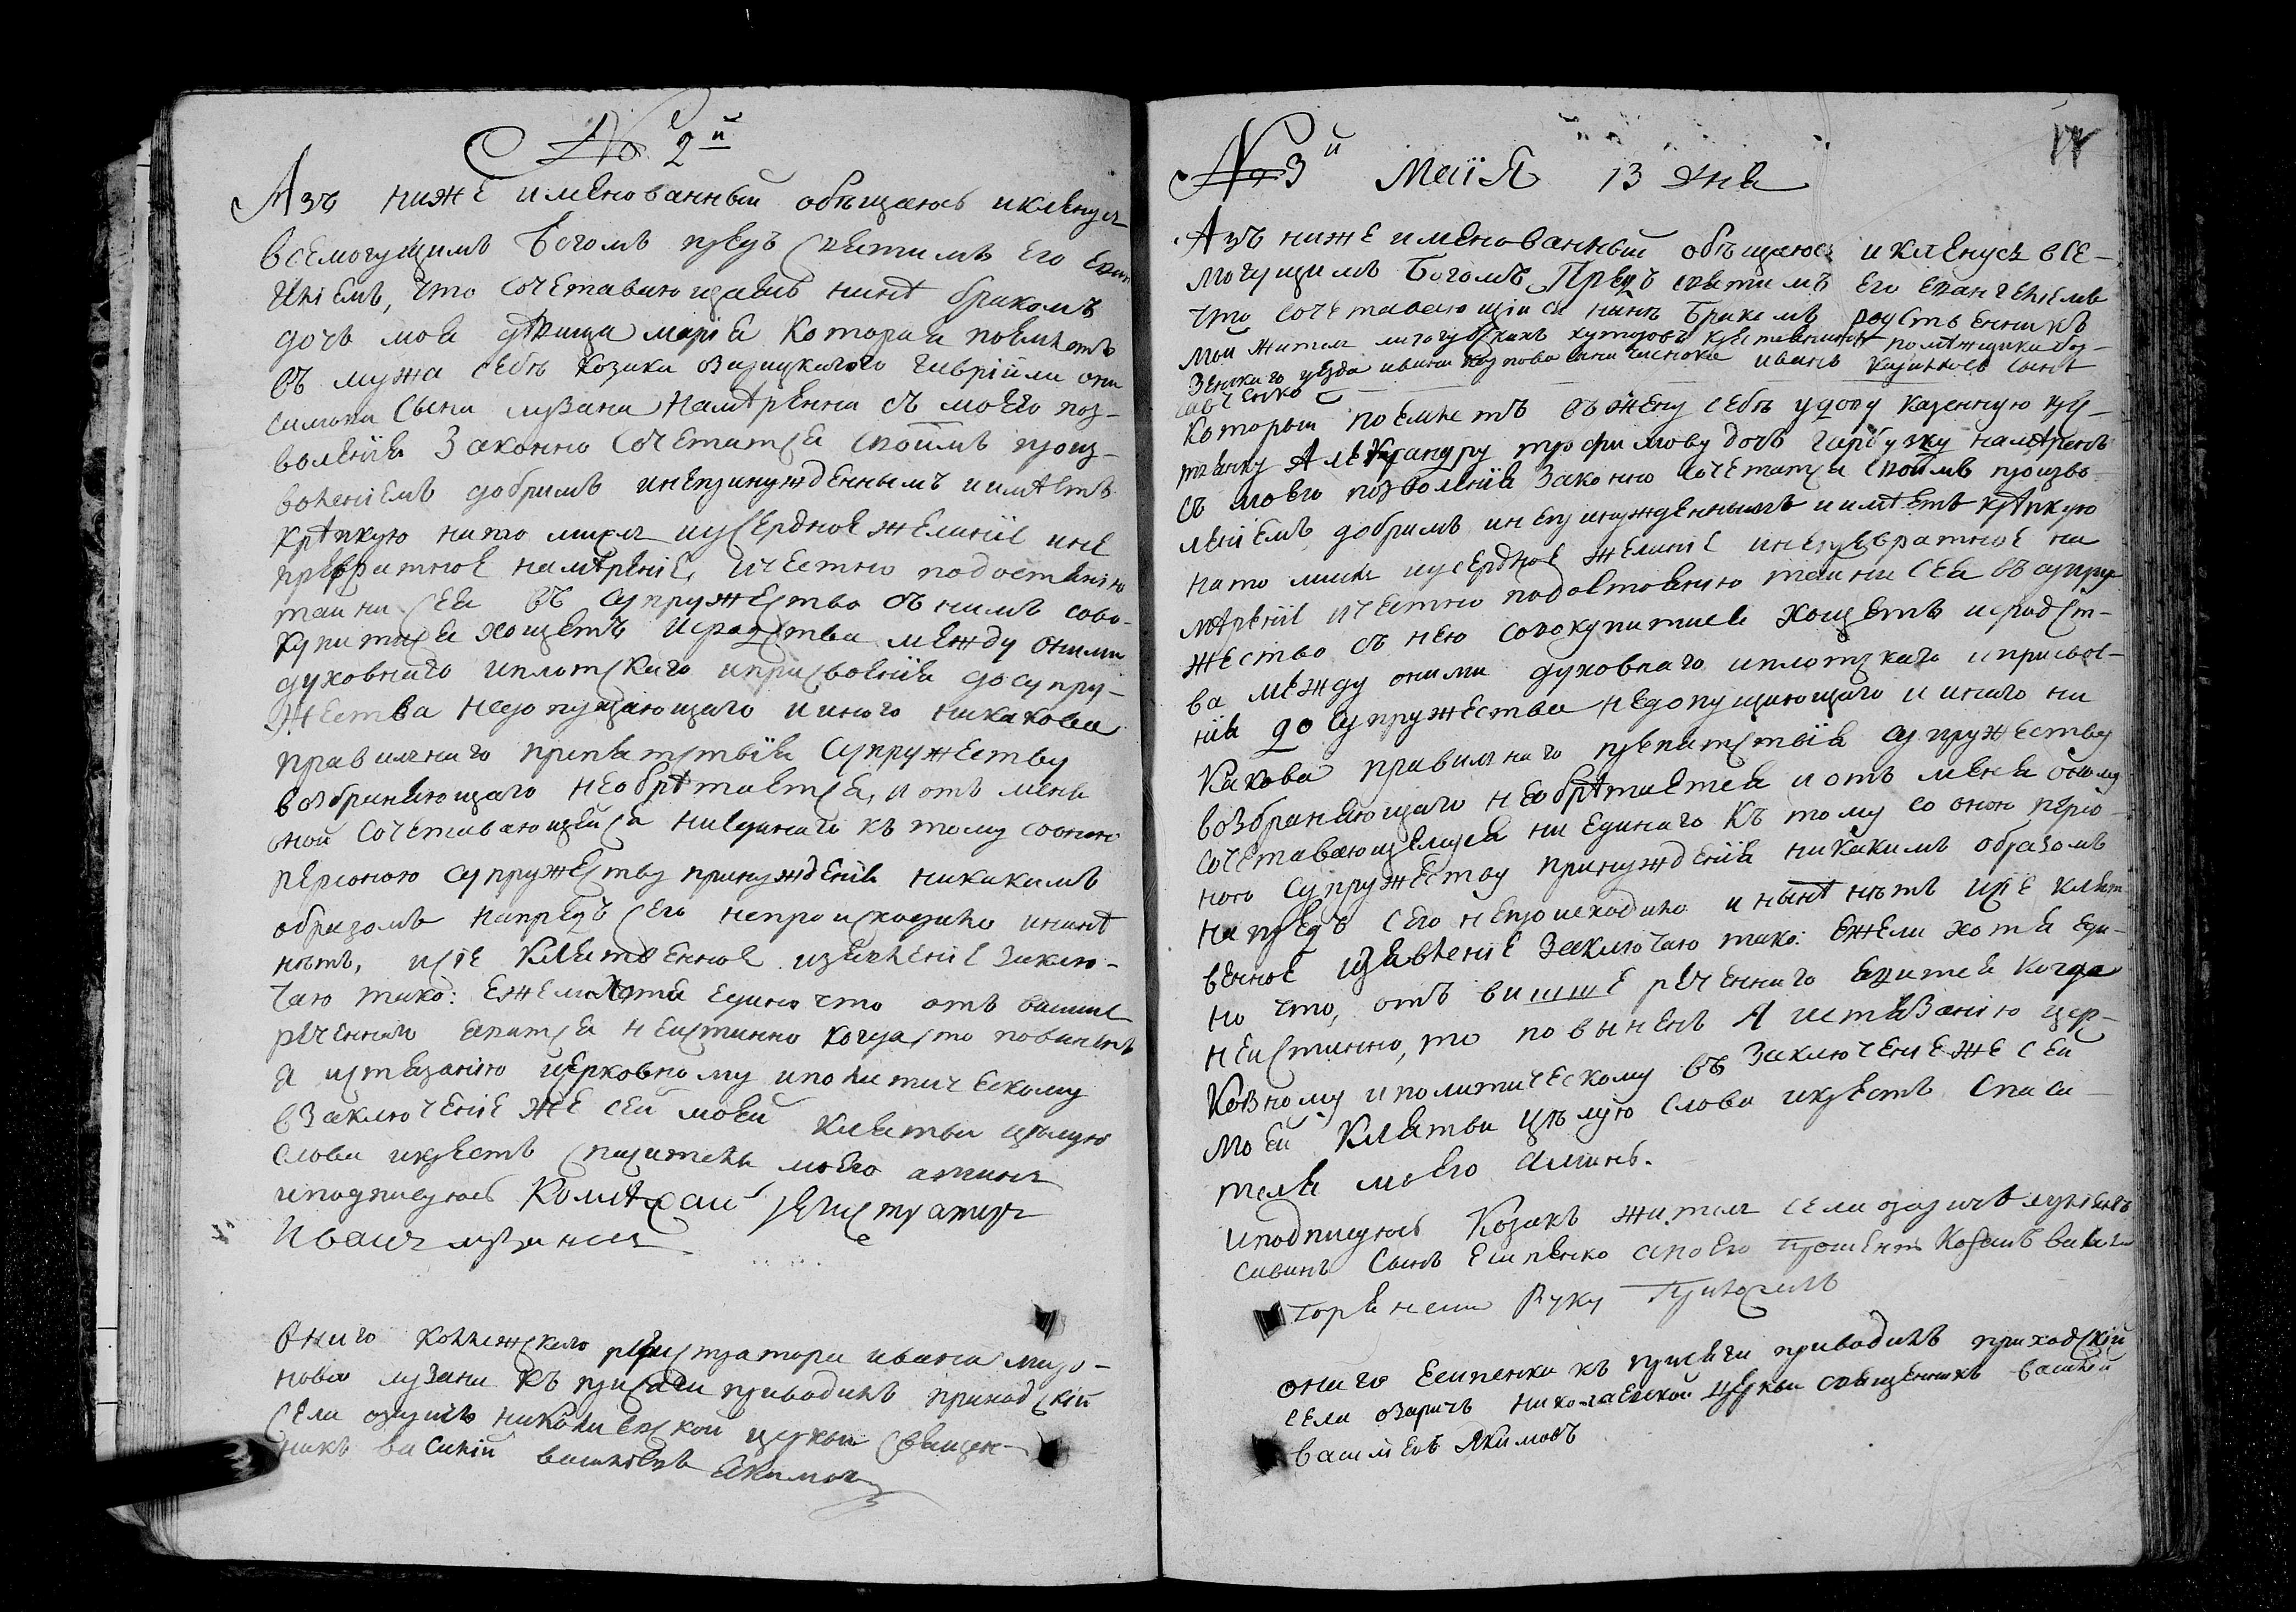 № 2й
Азъ ниже именованный обѣщаюсь и кленусь
всемогущимъ Богомъ предъ святимъ его еван
гилиемъ, что сочетавающаясъ нинѣ бракомъ
дочь моя дѣвица марія которая поемлетъ
въ мужа себѣ козака озарицкого гавріила
сына лузана намѣренна съ моего поз-
воленія законно сочетатся своимъ произ-
воленіемъ добримъ и непринужденнымъ и имѣетъ
крѣпкую на то мисль и усердное желаніе и не
превратное намѣреніе, и честно по достоянію
таини сея въ супружество съ нимъ сово-
купитися хощетъ и сродства между оними
духовнаго и плотскаго и присвоенія до супру-
жества недопущающаго и иного никакова
правилнаго препятствія супружеству
возбраняющаго необрѣтается, и отъ мене
оной сочетавающейся ниединаго къ тому со оною
персоною супружеству принужденія никакимъ
образомъ напредъ сего непроисходило и нинѣ
нѣтъ, и сіе клятвенное изявленіе заклю-
чаю тако: ежели хотя едино что отъ вишше
реченнаго явится неистинно когда, то повиненъ
я истязанію церковному и политическому
в заключеніе же сей моей клятвы цѣлую
слова и крестъ спасителя моего аминь
и подписуюсь регистраторъ
Иванъ лузанъ
Онаго коллежскаго регистратора ивана
лузана къ присяги приводилъ приходскій
села озаричъ николаевской церкви священ-
никъ василій василіевъ Якимовъ
№ 3й Маія 13 дня
17
Азъ ниже именованный обѣщаюсь и кленусъ все-
могущимъ Богомъ Предъ святимъ его евангелиемъ
что сочетавающийся нинѣ бракомъ родственникъ
мой житель хуторовъ крестянинъ помѣщика
уезда ивана иванъ сынъ
савченко
который поемлетъ въ жену себѣ удову казенную кре-
тянку Александру трофимову дочъ гарбузку намѣренъ
съ моего позволенія законно сочетатся своимъ произво-
леніемъ добримъ и непринужденнымъ и имѣетъ крѣпкую
на то мисль и усердное желаніе и непревратное на
мѣреніе и честно по достоянію таини сея въ супру
жество съ нею совокупитися хощетъ и сродст-
ва между оними духовнаго и плотскаго и присвое-
нія до супружества недопущающаго и инаго ни
какова правилнаго препятствія супружеству
возбраняющаго необрѣтается и отъ мене оному
сочетавающемуся ни единаго къ тому со оною персо-
ною супружеству принужденія никакимъ образомъ
напредъ сего непроисходило и нынѣ нѣтъ и сіе клят-
венное изявленіе заключаю тако: ежели хотя еди-
но что, отъ вишше реченнаго явится когда
неистинно, то повыненъ я истязанію цер-
ковному и политическому въ заключеніе же сей
моей клятви цѣлую слова и крестъ спаси-
теля моего Аминь.
и подписуюсь козакъ житель села озаричъ
савинъ сынъ есипенко а по его прошенію козакъ
руку приложилъ
онаго есипенка къ присяги приводилъ приходскій
села озаричъ николаевской церкви священникъ василій
василіевъ Якимовъ